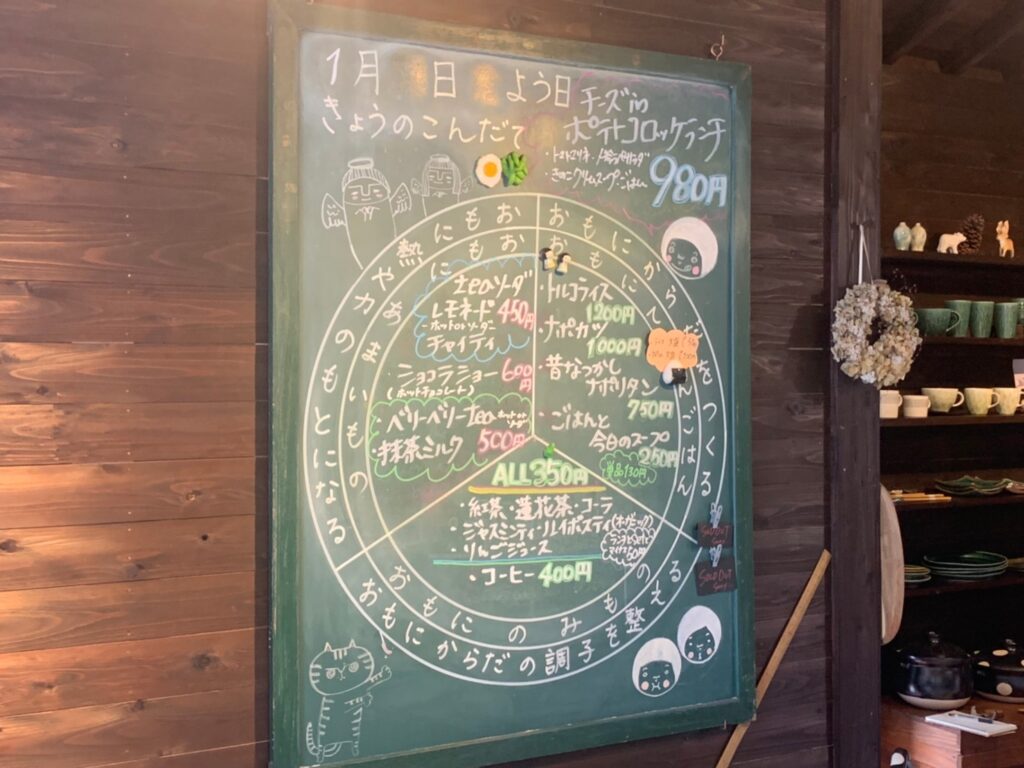 1月 日 よう日
きょうのこんだて
チーズin
ポテトコロッケランチ
きのこクリームスープ・ごはん
980円
おもにからだをつくる
おもにごはん
おもに熱や力のもとになる
おもにあまいもの
おもにからだの調子を整える
おもにのみもの
teaソーダ
レモネード 450円
ホットorソーダ
チャイティ
・ショコラショー 600円
(ホットチョコレート)
・ベリーベリーtea ホットorソーダ
・抹茶ミルク 500円
・トルコライス
1200円
・ナポカツ
1000円
・昔なつかし
ナポリタン
750円
・ごはんと
今日のスープ
250円
単品130円
ALL350円
・紅茶・蓮花茶・コーラ
・ジャスミンティ・ルイボスティ(オーガニック)
・りんごジュース
・コーヒー 400円
SOLD OUT
SOLD OUT